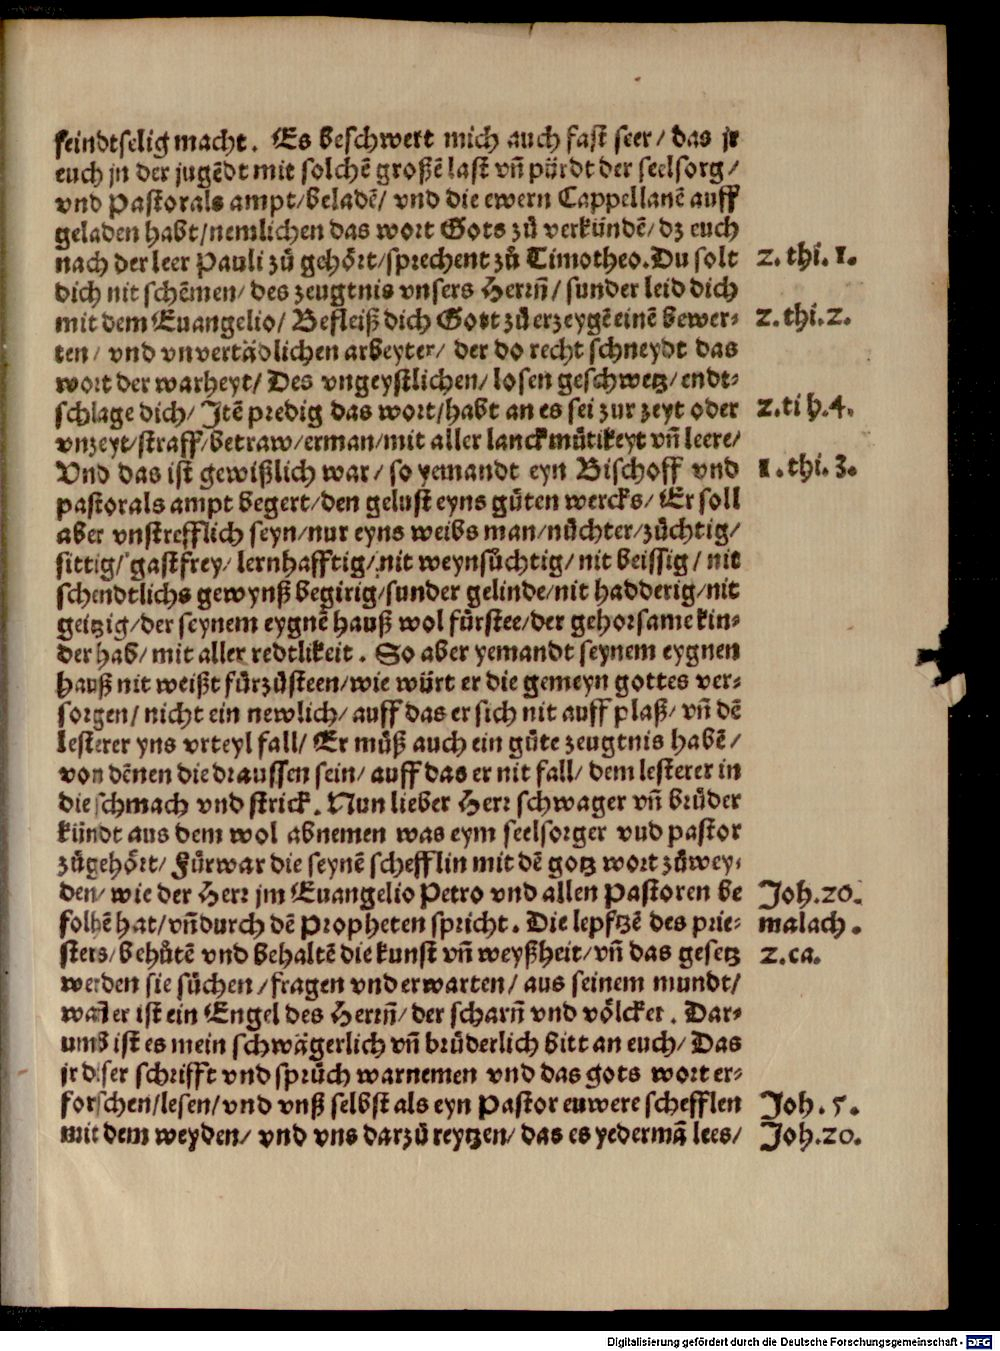 feindtselig macht. Es beschwert mich auch fast seer/ das jr
euch jn der jugẽdt mit solchẽ großẽ last vñ pürdt der seelsorg/
vnd Pastorals ampt/beladẽ/ vnd die ewern Cappellanẽ auff
geladen habt/nemlichen das wort Gots zů verkündẽ/ dz euch
nach der leer Pauli zů gehört/sprechent zů Timotheo. Du solt 2. thi. 1.
dich nit schẽmen/ des zeugtnis vnsers Herrñ/ sunder leid dich
mit dem Euangelio/ Befleiß dich Gott zů erzeygẽ einẽ bewer⸗ 2. thi. 2.
ten/ vnd vnvertädlichen arbeyter/ der do recht schneydt das
wort der warheyt/ Des vngeystlichen/ losen geschwetz/ endt⸗
schlage dich/ Jtẽ predig das wort/habt an es sei zur zeyt oder 2. tih. 4.
vnzeyt/straff/betraw/erman/mit aller lanckmůtikeyt vñ leere/
Vnd das ist gewißlich war/ so yemandt eyn Bischoff vnd 1. thi. 3.
pastorals ampt begert/den gelust eyns gůten wercks/ Er soll
aber vnstrefflich seyn/nur eyns weibs man/nüchter/züchtig/
sittig/ gastfrey/ lernhafftig/nit weynsüchtig/ nit beissig/ nit
schendtlichs gewynß begirig/sunder gelinde/nit hadderig/nit
geitzig/der seynem eygnẽ hauß wol fürstee/der gehorsame kin⸗
der hab/ mit aller redtlikeit. So aber yemandt seynem eygnen
hauß nit weißt fürzůsteen/wie würt er die gemeyn gottes ver⸗
sorgen/ nicht ein newlich/ auff das er sich nit auff plaß/ vñ dẽ
lesterer yns vrteyl fall/ Er můß auch ein gůte zeugtnis habẽ/
von dẽnen die draussen sein/ auff das er nit fall/ dem lesterer in
die schmach vnd strick. Nun lieber Herr schwager vñ brůder
kündt aus dem wol abnemen was eym seelsorger vnd pastor
zůgehört/ Fürwar die seynẽ schefflin mit dẽ gotz wort zůwey⸗
den/ wie der Herr jm Euangelio Petro vnd allen Pastoren be Joh. 20.
folhẽ hat/vñ durch dẽ Propheten spricht. Die lepftzẽ des prie⸗ malach.
sters/behůtẽ vnd behaltẽ die kunst vñ weyßheit/vñ das gesetz 2. ca.
werden sie sůchen/fragen vnd erwarten/ aus seinem mundt/
wañ er ist ein Engel des Herrñ/ der scharñ vnd völcker. Dar⸗
umb ist es mein schwägerlich vñ brüderlich bitt an euch/ Das
jr diser schrifft vnd sprüch warnemen vnd das gots wort er⸗
forschen/lesen/vnd vnß selbst als eyn Pastor euwere schefflen Joh. 5.
mit dem weyden/ vnd vns darzů reytzen/ das es yedermã lees/ Joh. 20.
Digitalisierung gefördert durch die Deutsche Forschungsgemeinschaft - DFG